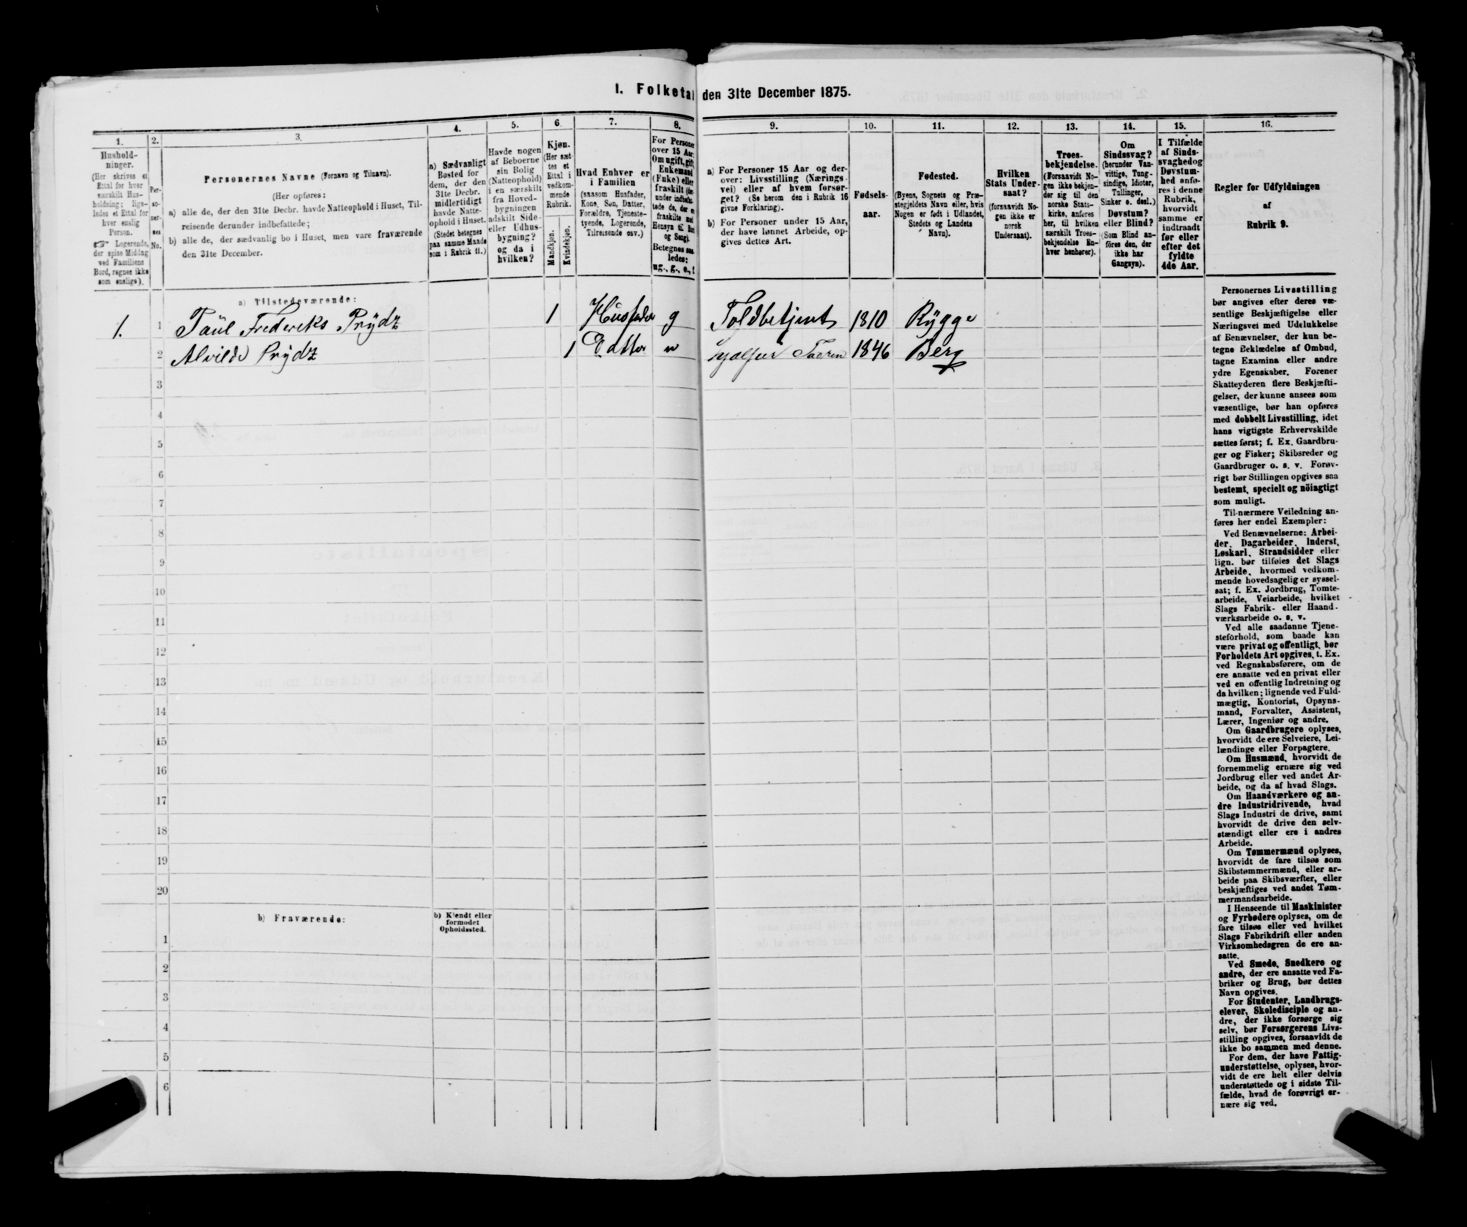 I. Folketal den 31te December 1875.
1.
Hushold-
ninger.
(Her skrives et
Ettal for hver
særskilt Hus-
holdning; lige-
ledes et Ettal for
hver enslig
Person.
☞ Logerende,
der spise Middag
ved Familiens
Bord, regnes ikke
som enslige).
2.
Per-
so-
ner-
nes
No.
3.
Personernes Navne (Fornavn og Tilnavn).
(Her opføres:
a) alle de, der den 31te Decbr. havde Natteophold i Huset, Til-
reisende derunder indbefattede;
b) alle de, der sædvanlig bo i Huset, men vare fraværende
den 31te December.
4.
a) Sædvanligt
Bosted for
dem, der den
31te Decbr.
midlertidigt
havde Natte-
ophold i Huset.
(Stedet betegnes
paa samme Maade
som i Rubrik 11.)
5.
Havde nogen
af Beboerne
sin Bolig
(Natteophold)
i en særskilt
fra Hoved-
bygningen
adskilt Side-
eller Udhus-
bygning?
og da i
hvilken?
6.
Kjøn.
(Her sæt-
tes et
Ettal i
vedkom-
mende
Rubrik.
Mandkjøn.
Kvindekjøn.
7.
Hvad Enhver er
i Familien
(saasom Husfader,
Kone, Søn, Datter,
Forældre, Tjeneste-
tyende, Logerende,
Tilreisende osv.)
8.
For Personer
over 15 Aar:
Om ugift, gift,
Enkemand
(Enke) eller
fraskilt
Betegnes saa-
ledes:
ug., g., e., f.
9.
a) For Personer 15 Aar og der-
over: Livsstilling (Nærings-
vei) eller af hvem forsør-
get? (Se herom den i Rubrik 16
givne Forklaring).
b) For Personer under 15 Aar,
der have lønnet Arbeide, op-
gives dettes Art.
10.
Fødsels-
aar.
11.
Fødested.
(Byens, Sognets og Præ-
stegjeldets Navn eller, hvis
Nogen er født i Udlandet,
Stedets og Landets
Navn).
12.
Hvilken
Stats Under-
saat?
(forsaavidt No-
gen ikke er
norsk
Undersaat).
13.
Troes-
bekjendelse.
(Forsaavidt No-
gen ikke bekjen-
der sig til den
norske Stats-
kirke, anføres
her, til hvilken
særskilt Troes-
bekjendelse En-
hver henhører).
14.
Om
Sindssvag?
(herunder Van-
vittige, Tung-
sindige, Idioter,
Tullinger,
Sinker o. desl.)
Døvstum?
eller Blind?
(Som Blind an-
føres den, der
ikke har
Gangsyn).
15.
I Tilfælde
af Sinds-
svaghed og
Døvstum-
hed anfø-
res i denne
Rubrik,
hvorvidt
samme er
indtraadt
før eller
efter det
fyldte
4de Aar.
16.
Regler for Udfyldningen
af
Rubrik 9.
a) Tilstedeværende:
1. 1 Paul Frederiks Prydz 1 Husfader g Toldbetjent 1810 Rygge
2 Alvilde Prydz 1 Datter 1846 Berg
3
4
5
6
7
8
9
10
11
12
13
14
15
16
17
18
19
20
b) Fraværende:
b) Kjendt eller
formodet
Opholdssted.
1
2
3
4
5
6
Personernes Livsstilling
bør angives efter deres væ-
sentlige Beskjæftigelse eller
Næringsvei med Udelukkelse
af Benævnelser, der kun be-
tegne Beklædelse af Ombud,
tagne Examina eller andre
ydre Egenskaber. Forener
Skatteyderen flere Beskjæfti-
gelser, der kunne ansees som
væsentlige, bør han opføres
med dobbelt Livsstilling, idet
hans vigtigste Erhvervskilde
sættes først; f. Ex. Gaardbru-
ger og Fisker; Skibsreder og
Gaardbruger o. s. v. Forøv-
rigt bør Stillingen opgives saa
bestemt, specielt og nøiagtigt
som muligt.
Til nærmere Veiledning an-
føres her endel Exempler:
Ved Benævnelserne: Arbei-
der, Dagarbeider, Inderst,
Løskarl, Strandsidder eller
lign. bør tilføies det Slags
Arbeide, hvormed vedkom-
mende hovedsagelig er syssel-
sat; f. Ex. Jordbrug, Tomte-
arbeide, Veiarbeide, hvilket
Slags Fabrik- eller Haand-
værksarbeide o. s. v.
Ved alle saadanne Tjene-
steforhold, som baade kan
være privat og offentligt, bør
Forholdets Art opgives, t. Ex.
ved Regnskabsførere, om de
ere ansatte ved en privat eller
ved en offentlig Indretning og
da hvilken; lignende ved Fuld-
mægtig, Kontorist, Opsyns-
mand, Forvalter, Assistent,
Lærer, Ingeniør og andre.
Om Gaardbrugere oplyses,
hvorvidt de ere Selveiere, Lei-
lændinge eller Forpagtere.
Om Husmænd, hvorvidt de
fornemmelig ernære sig ved
Jordbrug eller ved andet Ar-
beide, og da af hvad Slags.
Om Haandværkere og an-
dre Industridrivende, hvad
Slags Industri de drive, samt
hvorvidt de drive den selv-
stændigt eller ere i andres
Arbeide.
Om Tømmermænd oplyses,
hvorvidt de fare tilsøs som
Skibstømmermænd, eller ar-
beide paa Skibsværfter, eller
beskjæftiges ved andet Tøm-
mermandsarbeide.
I Henseende til Maskinister
og Fyrbødere oplyses, om de
fare tilsøs eller ved hvilket
Slags Fabrikdrift eller anden
Virksomhedsgren de ere an-
satte.
Ved Smede, Snedkere og
andre, der ere ansatte ved Fa-
briker og Brug, bør dettes
Navn opgives.
For Studenter, Landbrugs-
elever, Skoledisciple og an-
dre, der ikke forsørge sig
selv, bør Forsørgerens Livs-
stilling opgives, forsaavidt de
ikke bo sammen med denne.
For dem, der have Fattig-
understøttelse, oplyses, hvor-
vidt de ere helt eller delvis
understøttede og i sidste Til-
fælde, hvad de forøvrigt er-
nære sig ved.